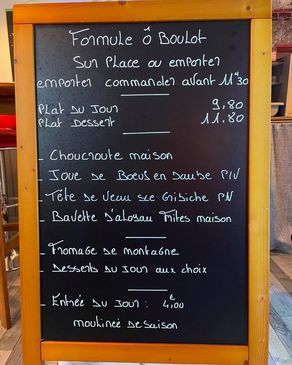 Formule Ô Boulot
Sur Place ou emporter
emporter commander avant 11h30
Plat Du Jour 9,80
Plat Dessert 11.80
- Choucroute maison
- Joue de Boeuf en Daube P/V
- Tête de Veau sce Gibiche PN
- Bavette D'aloyau Frites maison
- Fromage de montagne
- Desserts du Jour aux choix
- Entrée du Jour : 4€,00
moulinée de Saison